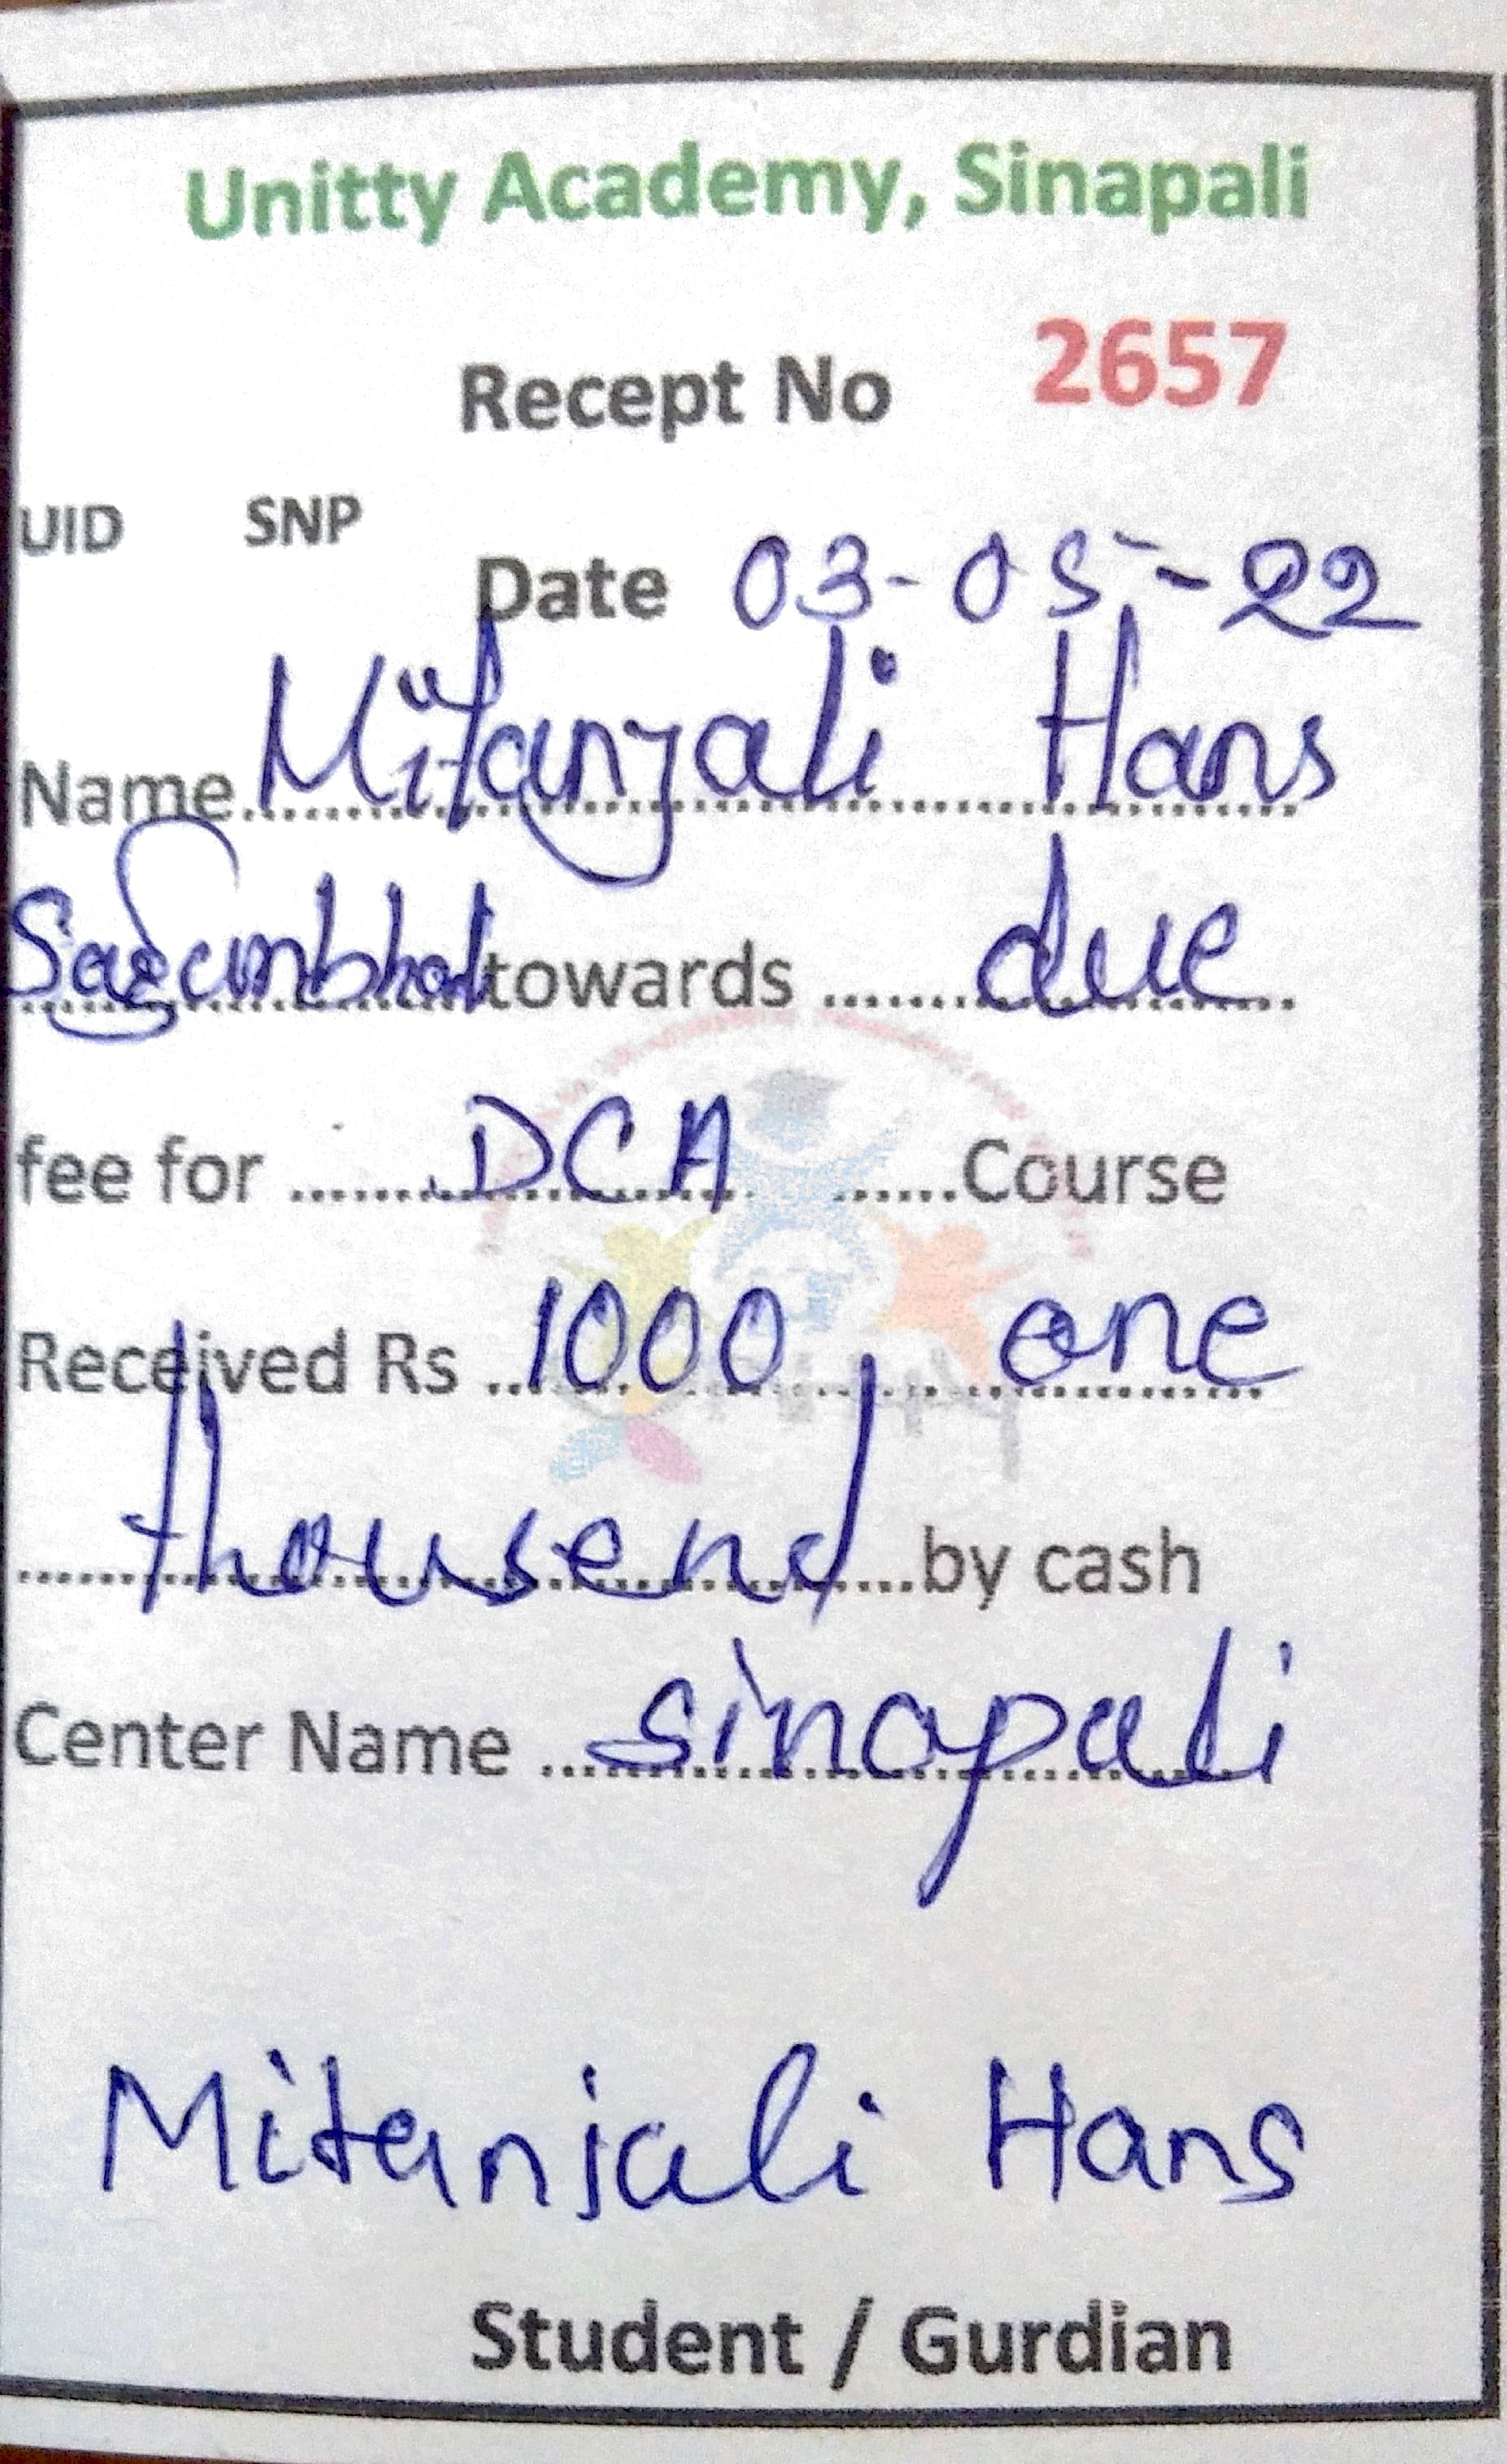 Unitty Academy, Sinapali
Recept No 2657
UID SNP
Date 03-05-22
Name Mitanjali Hans
towards due
fee for DCA Course
Received Rs 1000, one
thousend by cash
Center Name sinapali
Mitanjali Hans
Student / Gurdian